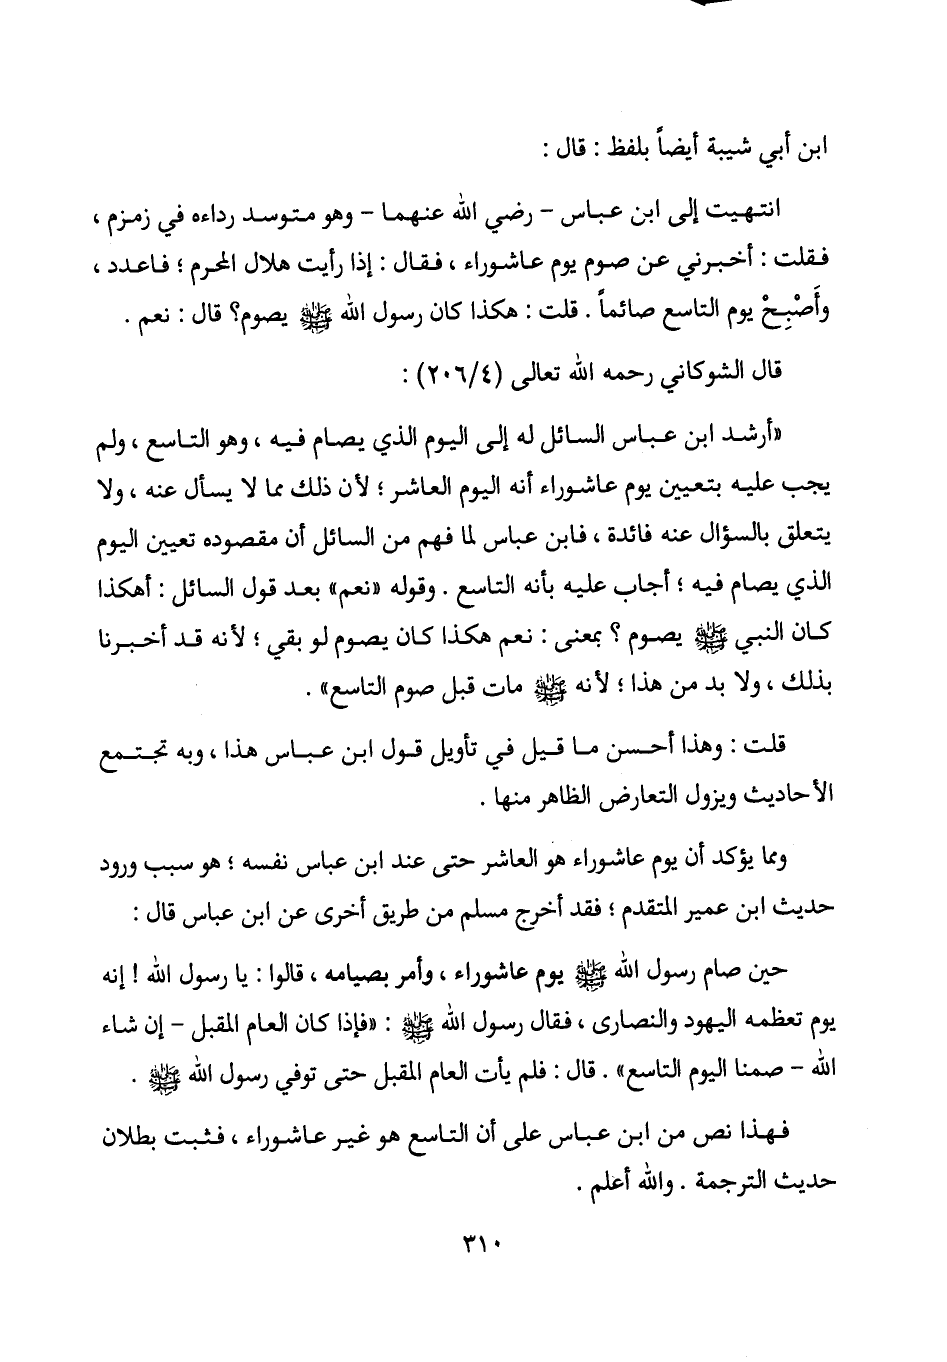 ابن أبي شيبة أيضاً بلفظ : قال :
انتهيت إلى ابن عباس - رضي الله عنهما - وهو متوسد رداءه في زمزم ،
فقلت : أخبرني عن صوم يوم عاشوراء ، فقال : إذا رأيت هلال المحرم ؛ فاعدد ،
وأَصْبِحْ يوم التاسع صائماً . قلت : هكذا كان رسول الله ﷺ يصوم؟ قال : نعم .
قال الشوكاني رحمه الله تعالى (٢٠٦/٤) :
«أرشد ابن عباس السائل له إلى اليوم الذي يصام فيه ، وهو التاسع ، ولم
يجب عليه بتعيين يوم عاشوراء أنه اليوم العاشر ؛ لأن ذلك مما لا يسأل عنه ، ولا
يتعلق بالسؤال عنه فائدة ، فابن عباس لما فهم من السائل أن مقصوده تعيين اليوم
الذي يصام فيه ؛ أجاب عليه بأنه التاسع . وقوله «نعم» بعد قول السائل : أهكذا
كان النبي ﷺ يصوم ؟ بمعنى : نعم هكذا كان يصوم لو بقي ؛ لأنه قد أخبرنا
بذلك ، ولا بد من هذا ؛ لأنه ﷺ مات قبل صوم التاسع» .
قلت : وهذا أحسن ما قيل في تأويل قول ابن عباس هذا ، وبه تجتمع
الأحاديث ويزول التعارض الظاهر منها .
ومما يؤكد أن يوم عاشوراء هو العاشر حتى عند ابن عباس نفسه ؛ هو سبب ورود
حديث ابن عمير المتقدم ؛ فقد أخرج مسلم من طريق أخرى عن ابن عباس قال :
حين صام رسول الله ﷺ يوم عاشوراء ، وأمر بصيامه ، قالوا : يا رسول الله ! إنه
يوم تعظمه اليهود والنصارى ، فقال رسول الله ﷺ : «فإذا كان العام المقبل - إن شاء
الله - صمنا اليوم التاسع» . قال : فلم يأت العام المقبل حتى توفي رسول الله ﷺ .
فهذا نص من ابن عباس على أن التاسع هو غير عاشوراء ، فثبت بطلان
حديث الترجمة . والله أعلم .
٣١٠